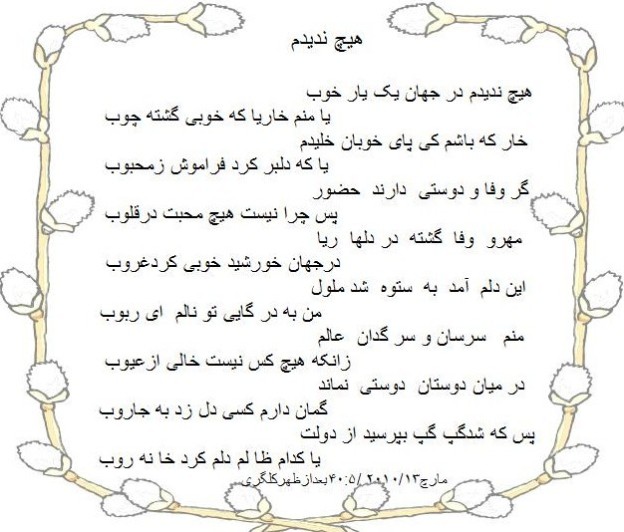 هیچ ندیدم
هیچ ندیدم در جهان یک یار خوب
یا منم خاریا که خوبی گشته چوب
خار که باشم کی پای خوبان خلیدم
یا که دلبر کرد فراموش زمحبوب
گر وفا و دوستی دارند حضور
پس چرا نیست هیچ محبت درقلوب
مهرو وفا گشته در دلها ریا
درجهان خورشید خوبی کردغروب
این دلم آمد به ستوه شد ملول
من به در گایی تو نالم ای ربوب
منم سرسان و سر گدان عالم
زانکه هیچ کس نیست خالی ازعیوب
در میان دوستان دوستی نماند
گمان دارم کسی دل زد به جاروب
پس که شدگپ گپ بپرسید از دولت
یا کدام ظا لم دلم کرد خا نه روب
مارچ۲۰۱۰/۱۳ /۴۰:۵بعدازظهرکلگری